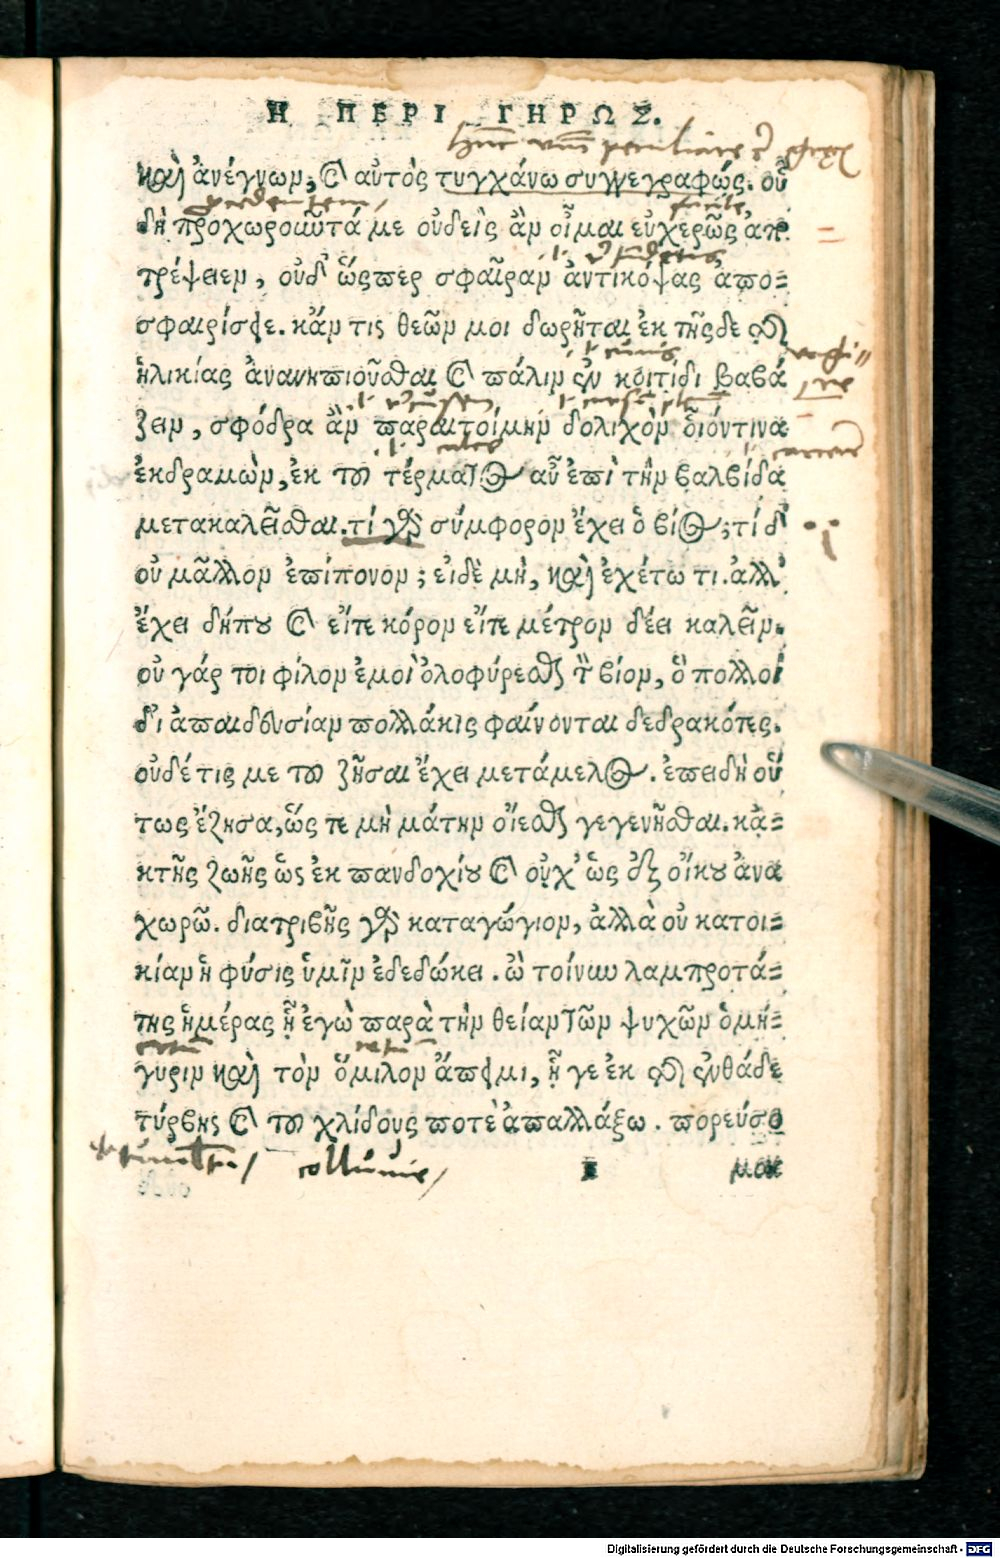 Η ΠΕΡΙ ΓΗΡΩΣ.
καὶ ἀνέγνων, καὶ αὐτὸς τυγχάνω συγγεγραφώς. οὗ
δὴ προχωροῦντά με οὐδεὶς ἂν οἶμαι εὐχερῶς ἀπ
τρέψειεν, οὐδ' ὥσπερ σφαῖραν ἀντικόψας ἀπο-
σφαιρίσειε. κἄν τις θεῶν μοι δωρῆται ἐκ τῆςδε τῆς
ἡλικίας ἀνανηπιοῦσθαι καὶ πάλιν ἐν κοιτίδι βαβά
ζειν, σφόδρα ἂν παραιτοίμην δολιχὸν διόντινα
ἐκδραμὼν, ἐκ τοῦ τέρματος αὖ ἐπὶ τὴν βαλβίδα
μετακαλεῖσθαι. τί γὰρ σύμφορον ἔχει ὁ βίος; τί δ'
οὐ μᾶλλον ἐπίπονον; εἰδὲ μὴ, καὶ ἐχέτω τι. ἀλλ'
ἔχει δήπου καὶ εἴτε κόρον εἴτε μέτρον δέει καλεῖν.
οὐ γάρ τοι φίλον ἐμοὶ ὀλοφύρεσθαι τὸν βίον, ὃ πολλοὶ
δι ἀπαιδευσίαν πολλάκις φαίνονται δεδρακότες.
οὐδέ τις με τοῦ ζῆσαι ἔχει μετάμελος. ἐπειδὴ οὕ
τως ἔζησα, ὥς τε μὴ μάτην οἴεσθαι γεγενῆσθαι. κἀ-
κτῆς ζωῆς ὡς ἐκ πανδοχίου καὶ οὐχ' ὡς ἐξ οἴκου ἀνα
χωρῶ. διατριβῆς γὰρ καταγώγιον, ἀλλὰ οὐ κατοι-
κίαν ἡ φύσις ὑμῖν ἐδεδώκει. ὢ τοίνυν λαμπροτά-
της ἡμέρας ᾗ ἐγὼ παρὰ τὴν θείαν τῶν ψυχῶν ὁμή-
γυριν καὶ τὸν ὅμιλον ἄπειμι, ᾗ γε ἐκ τῆς ἐνθάδε
τύρβης καὶ τοῦ χλίδους ποτὲ ἀπαλλάξω. πορεύσο
colluuie
I μαι
Digitalisierung gefördert durch die Deutsche Forschungsgemeinschaft - DFG